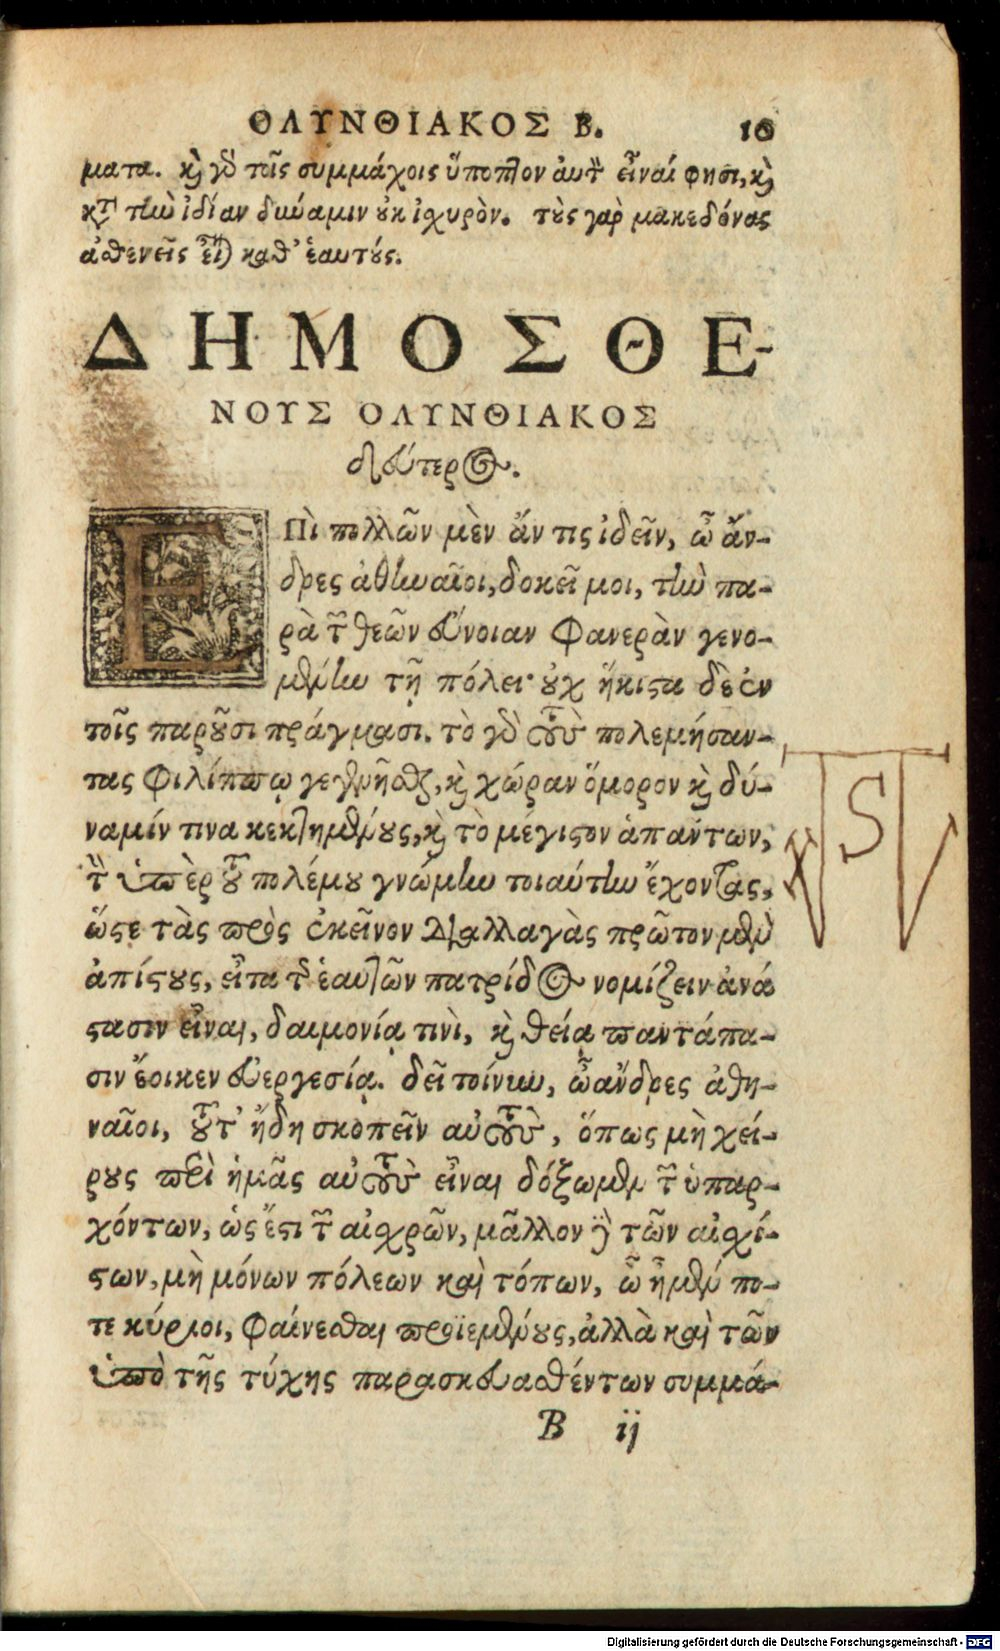 ΟΛΥΝΘΙΑΚΟΣ Β. 10
ματα. καὶ γὸ τοῖς συμμάχοις ὕποπλον αὐτὸν εἶναί φησι, καὶ
κτ τὴν ἰδίαν δύναμιν οὐκ ἰσχυρόν. τοὺς γαρ μακεδόνας
ἀσθενεῖς εἶ) καθ' ἑαυτούς.
ΔΗΜΟΣΘΕ-
ΝΟΥΣ ΟΛΥΝΘΙΑΚΟΣ
δεύτερος.
ΕΠὶ πολλῶν μὲν ἄν τις ἰδεῖν, ὦ ἄν-
δρες ἀθηναῖοι, δοκεῖ μοι, τὴν πα-
ρὰ τῶν θεῶν εὔνοιαν φανερὰν γενο-
μένην τῇ πόλει· οὐχ ἥκιστα δὲ ἐν
τοῖς παροῦσι πράγμασι. τὸ γὸ τοὺς πολεμήσαν-
τας Φιλίππῳ γεγενῆσθαι, καὶ χώραν ὅμορον καὶ δύ-
ναμίν τινα κεκτημένους, καὶ τὸ μέγιστον ἁπάντων,
τὴν ὑπὲρ τοῦ πολέμου γνώμην τοιαύτην ἔχοντας,
ὥστε τὰς πρὸς ἐκεῖνον διαλλαγὰς πρῶτον μὲν
ἀπίστους, εἶτα τῆς ἑαυτῶν πατρίδος νομίζειν ἀνά
στασιν εἶναι, δαιμονίᾳ τινὶ, καὶ θείᾳ παντάπα-
σιν ἔοικεν εὐεργεσίᾳ. δεῖ τοίνυν, ὦ ἄνδρες ἀθη-
ναῖοι, τοῦτ' ἤδη σκοπεῖν αὐτοὺς, ὅπως μὴ χεί-
ρους περὶ ἡμᾶς αὐτοὺς εἶναι δόξωμεν τῶν ὑπαρ-
χόντων, ὡς ἔστι τῶν αἰσχρῶν, μᾶλλον δὲ τῶν αἰσχί-
στων, μὴ μόνων πόλεων καὶ τόπων, ὧ ἦμέν πο-
τε κύριοι, φαίνεσθαι προϊεμένους, ἀλλὰ καὶ τῶν
ὑπὸ τῆς τύχης παρασκευασθέντων συμμά-
B ij
S
Digitalisierung gefördert durch die Deutsche Forschungsgemeinschaft - DFG